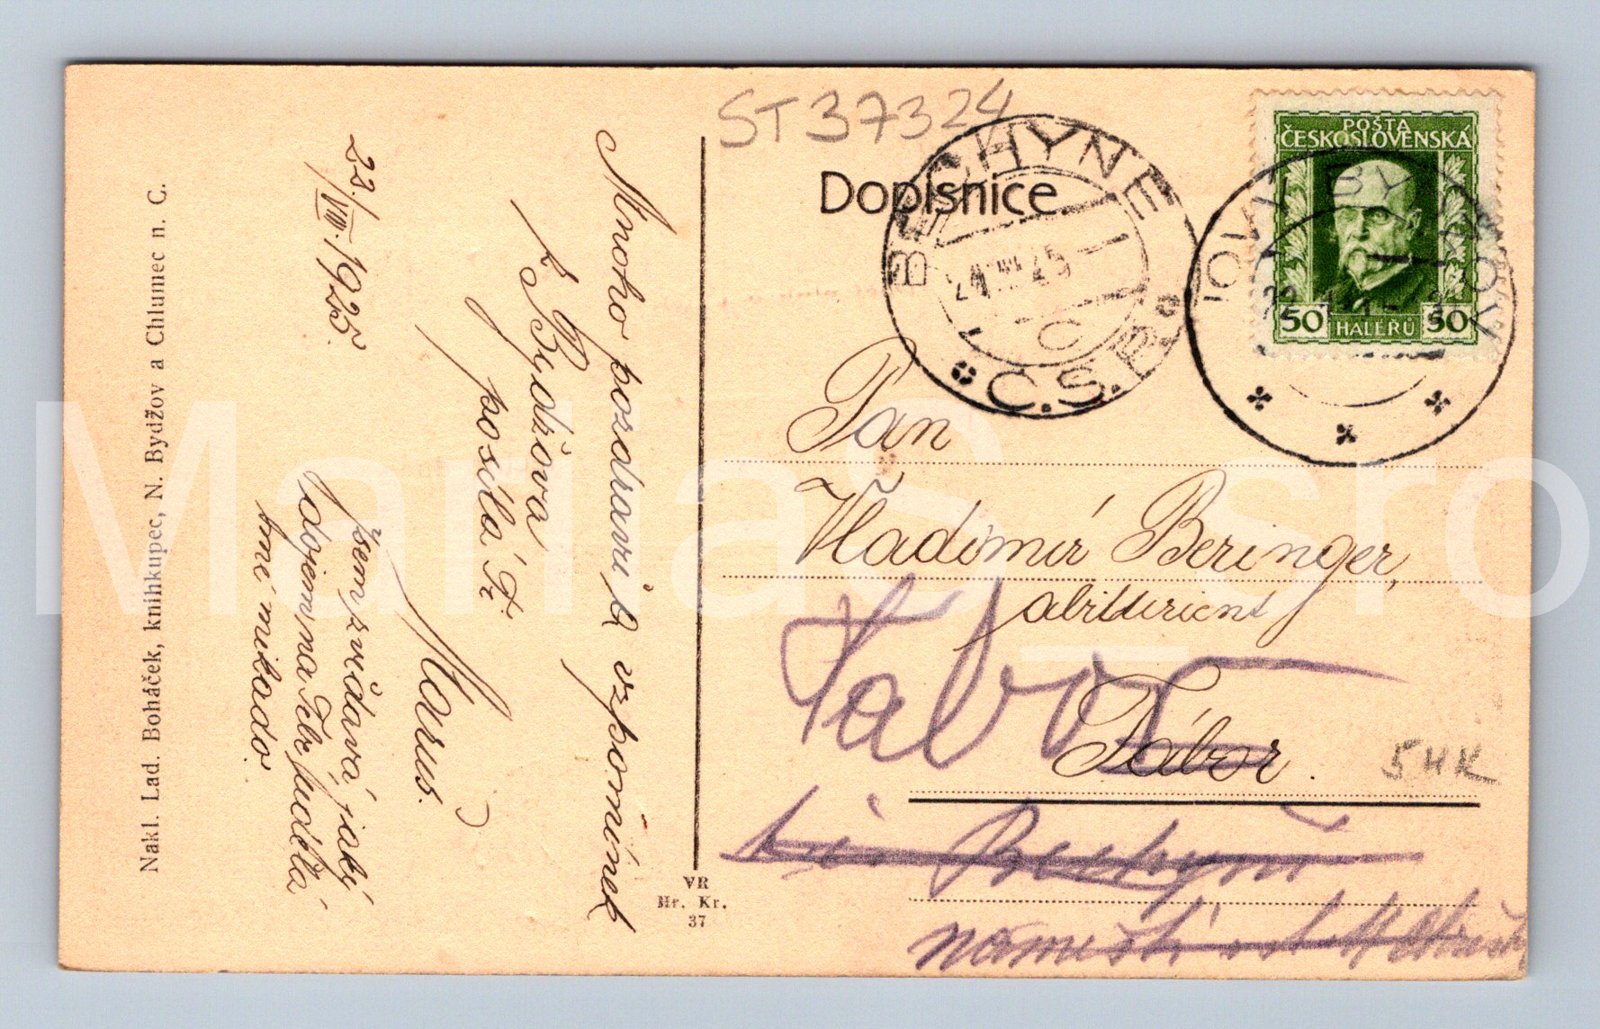 ST37324
Dopisnice
BECHYNĚ
24.VIII.25
C
Č.S.R.
NOVÝ BYDŽOV
POŠTA
ČESKOSLOVENSKÁ
50 HALÉŘŮ 50
Pan
Vladimír Beringer,
abiturient
Tábor
Tábor.
5 HK
Bechyně
náměstí
Mnoho pozdravů a vzpomínek
z N. Bydžova
posílá Fr.
Maruš.
23./VIII. 1925.
Všem zvědavá, jaký
dojem na Tebe udělá
mé mikado.
VR
Hr. Kr.
37
Nakl. Lad. Boháček, knihkupec, N. Bydžov a Chlumec n. C.
MariaS_sro